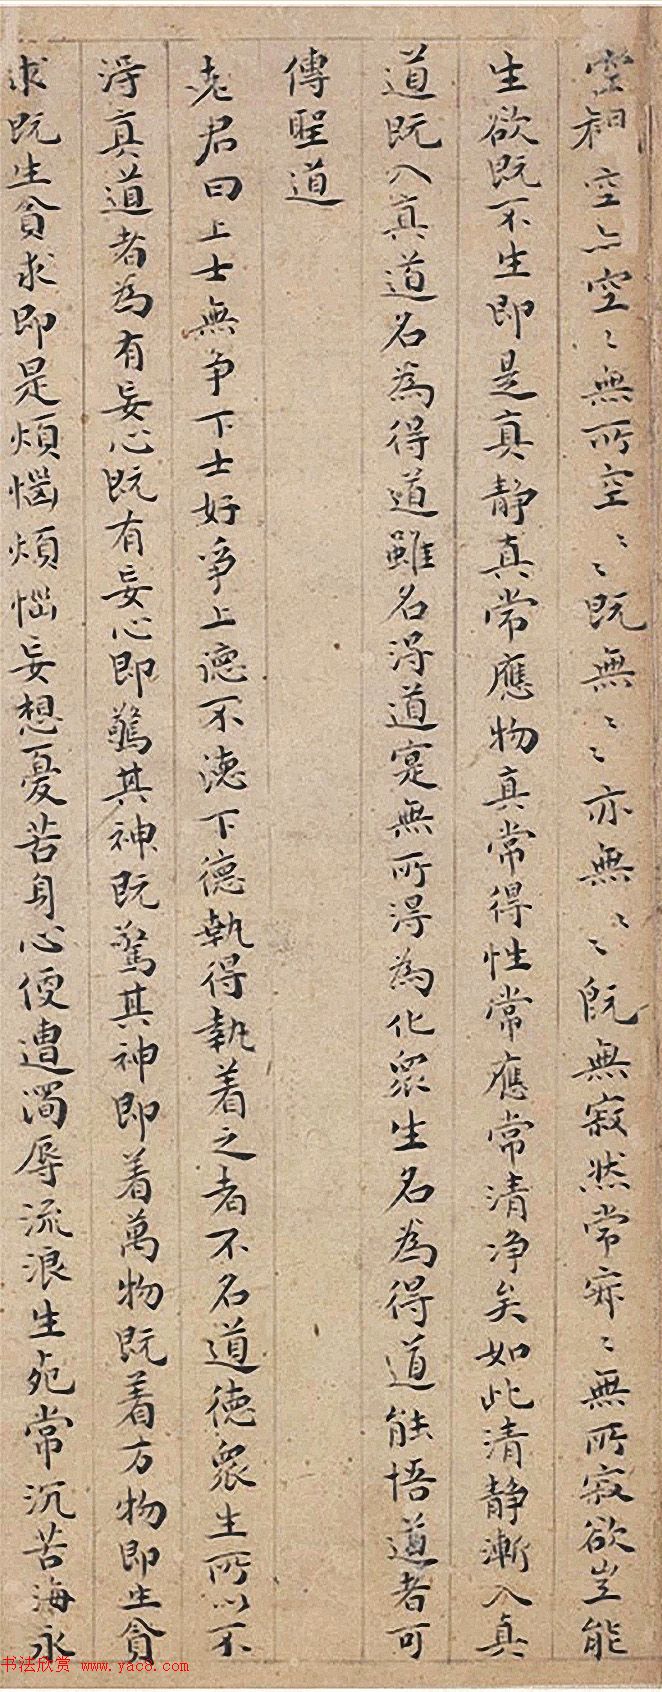 空相空亦空〻無所空〻〻既無〻〻亦無〻〻既無寂然常寂〻無所寂欲豈能
生欲既不生即是真靜真常應物真常得性常應常清净矣如此清靜漸入真
道既入真道名為得道雖名得道寔無所得為化衆生名為得道能悟道者可
傳聖道
老君曰上士無争下士好爭上德不德下德執得執着之者不名道德衆生所以不
得真道者為有妄心既有妄心即驚其神既驚其神即着萬物既着万物即生貪
求既生貪求即是煩惱煩惱妄想憂苦身心便遭濁辱流浪生死常沉苦海永
书法欣赏 www.yac8.com